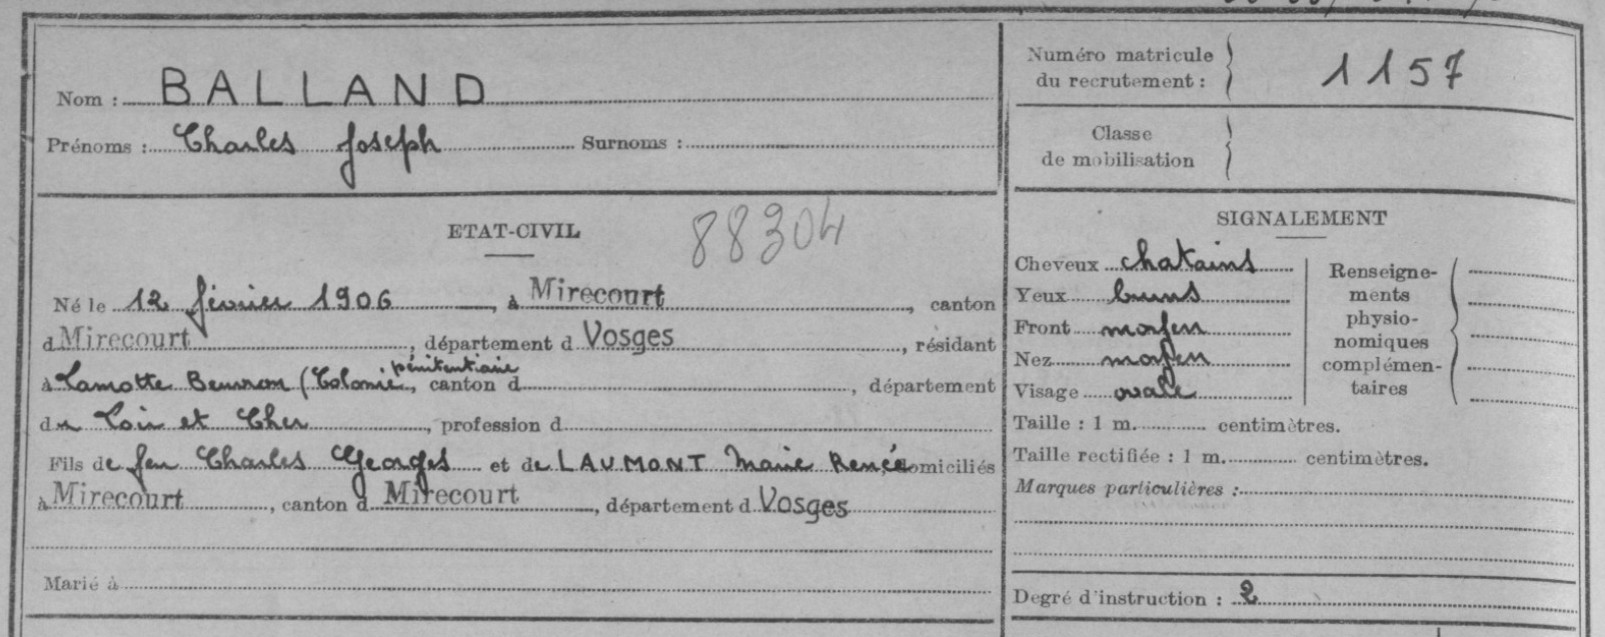 Nom : BALLAND
Prénoms : Charles Joseph Surnoms :
Numéro matricule
du recrutement : 1157
Classe
de mobilisation
ETAT-CIVIL
88304
Né le 12 février 1906, à Mirecourt, canton
d Mirecourt, département d Vosges, résidant
pénitentiaire
à Lamotte Beuvron (Colonie, canton d, département
du Loir et Cher, profession d
Fils de feu Charles Georges et de LAUMONT Marie Renée domiciliés
à Mirecourt, canton d Mirecourt, département d Vosges
Marié à
SIGNALEMENT
Cheveux chatains
Yeux bruns
Front moyen
Nez moyen
Visage ovale
Renseigne-
ments
physio-
nomiques
complémen-
taires
Taille : 1 m. centimètres.
Taille rectifiée : 1 m. centimètres.
Marques particulières :
Degré d'instruction : 2